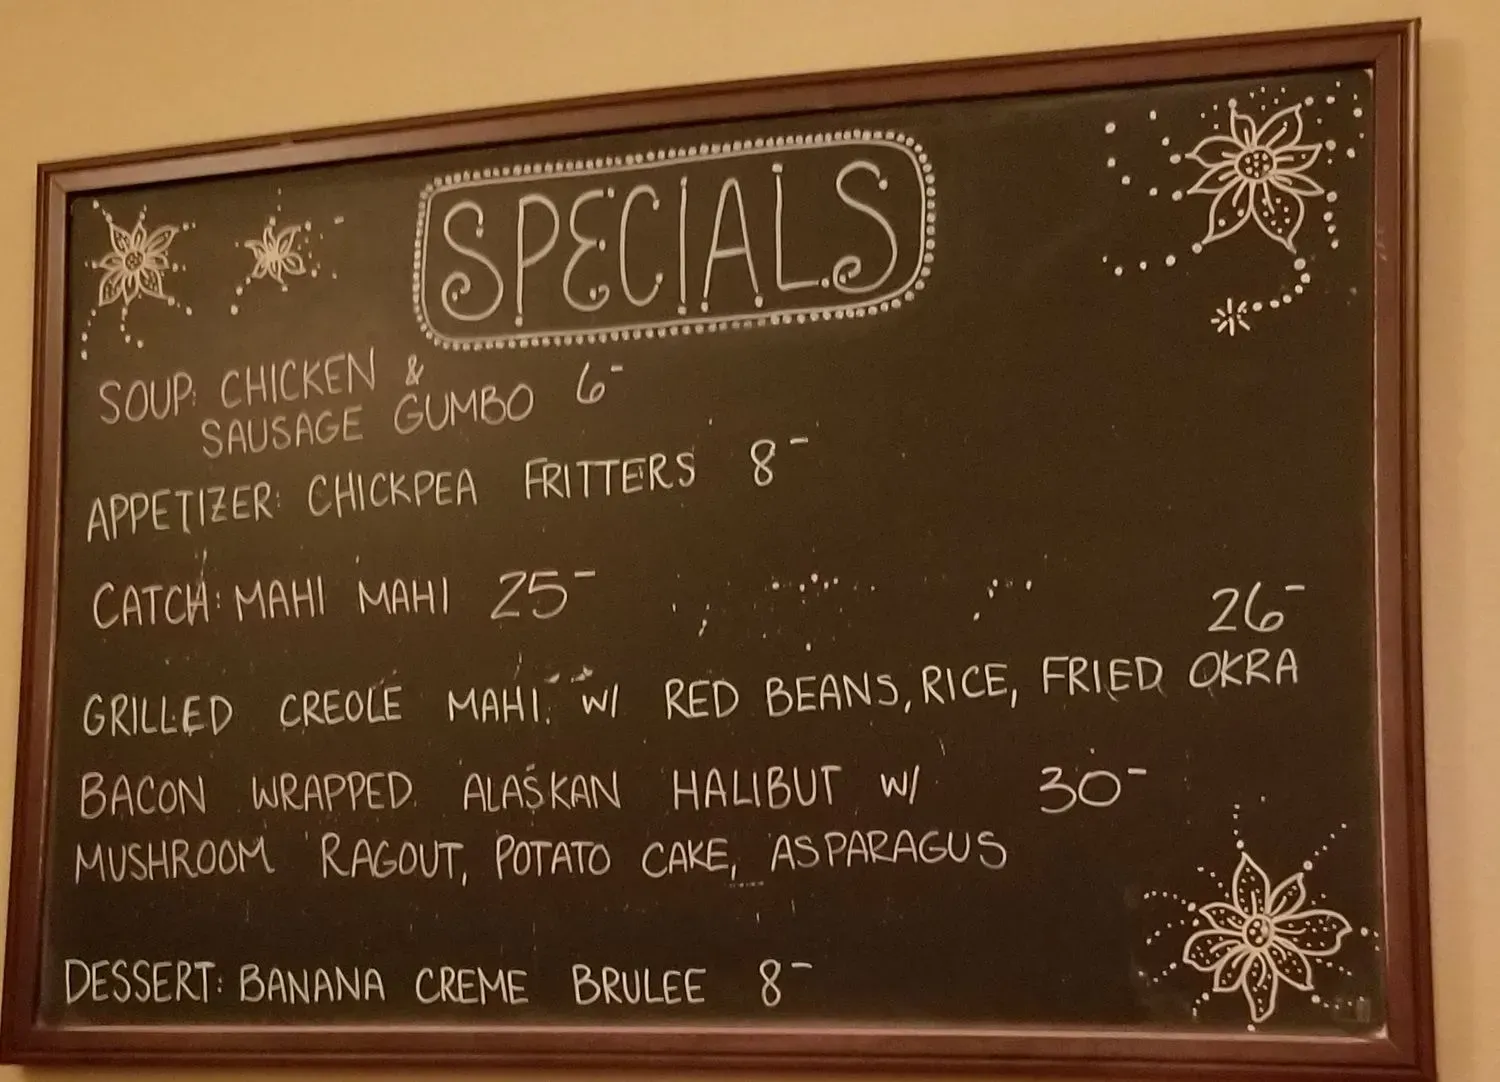 SPECIALS
SOUP: CHICKEN &
SAUSAGE GUMBO 6-
APPETIZER: CHICKPEA FRITTERS 8-
CATCH: MAHI MAHI 25-
26-
GRILLED CREOLE MAHI W/ RED BEANS, RICE, FRIED OKRA
BACON WRAPPED ALASKAN HALIBUT W/ 30-
MUSHROOM RAGOUT, POTATO CAKE, ASPARAGUS
DESSERT: BANANA CREME BRULEE 8-